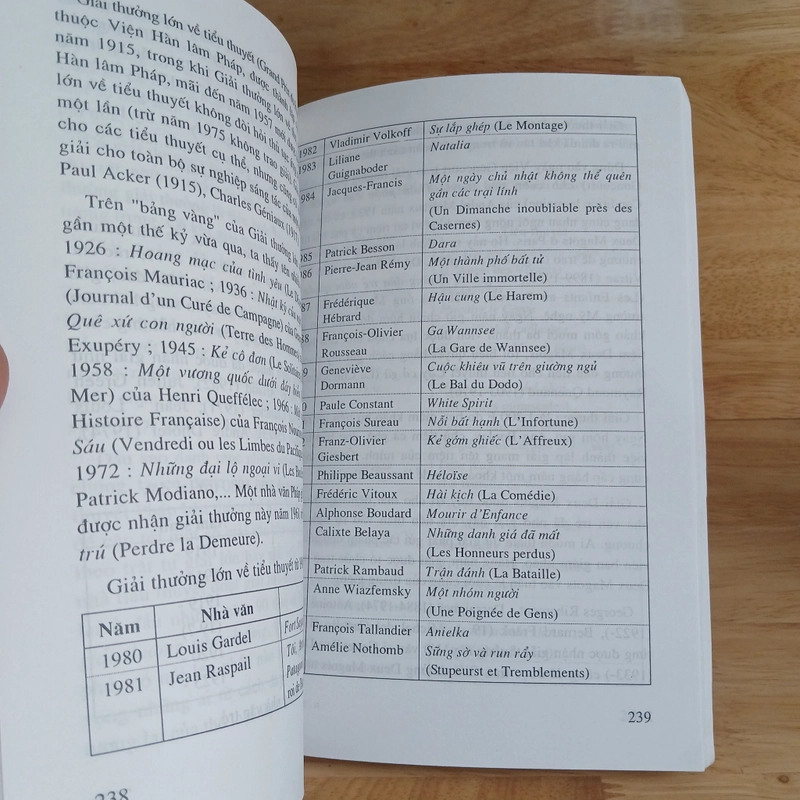 Giải thưởng lớn về tiểu thuyết (Grand Prix
thuộc Viện Hàn lâm Pháp, được thành
năm 1915, trong khi Giải thưởng lớn về
Hàn lâm Pháp, mãi đến năm 1957 mới
lớn về tiểu thuyết không đòi hỏi thủ tục
một lần (trừ năm 1975 không trao giải)
cho các tiểu thuyết cụ thể, nhưng cũng có
giải cho toàn bộ sự nghiệp sáng tác của
Paul Acker (1915), Charles Géniaux
Trên "bảng vàng" của Giải thưởng lớn
gần một thế kỷ vừa qua, ta thấy tên
1926 : Hoang mạc của tình yêu (Le
François Mauriac ; 1936 : Nhật ký của
(Journal d'un Curé de Campagne) của
Quê xứ con người (Terre des Hommes)
Exupéry ; 1945 : Kẻ cô đơn (Le
1958 : Một vương quốc dưới đáy
Mer) của Henri Queffélec ; 1966 :
Histoire Française) của François
Sáu (Vendredi ou les Limbes du
1972 : Những đại lộ ngoại vi (Les
Patrick Modiano,... Một nhà văn
được nhận giải thưởng này năm
trú (Perdre la Demeure).
Giải thưởng lớn về tiểu thuyết từ
Năm Nhà văn
1980 Louis Gardel Fort
1981 Jean Raspail Tôi,
roi de
238
1982 Vladimir Volkoff Sự lắp ghép (Le Montage)
1983 Liliane Natalia
Guignaboder
984 Jacques-Francis Một ngày chủ nhật không thể quên
gần các trại lính
(Un Dimanche inoubliable près des
Casernes)
985 Patrick Besson Dara
86 Pierre-Jean Rémy Một thành phố bất tử
(Un Ville immortelle)
87 Frédérique Hậu cung (Le Harem)
Hébrard
8 François-Olivier Ga Wannsee
Rousseau (La Gare de Wannsee)
9 Geneviève Cuộc khiêu vũ trên giường ngủ
Dormann (Le Bal du Dodo)
0 Paule Constant White Spirit
François Sureau Nỗi bất hạnh (L'Infortune)
Franz-Olivier Kẻ gớm ghiếc (L'Affreux)
Giesbert
Philippe Beaussant Héloïse
Frédéric Vitoux Hài kịch (La Comédie)
Alphonse Boudard Mourir d'Enfance
Calixte Belaya Những danh giá đã mất
(Les Honneurs perdus)
Patrick Rambaud Trận đánh (La Bataille)
Anne Wiazfemsky Một nhóm người
(Une Poignée de Gens)
François Tallandier Anielka
Amélie Nothomb Sững sờ và run rẩy
(Stupeurst et Tremblements)
239